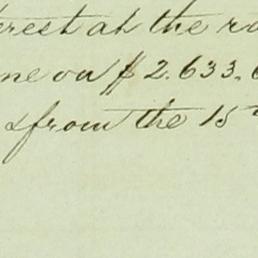 erest at the ra
ne on $2.633.6
& from the 15